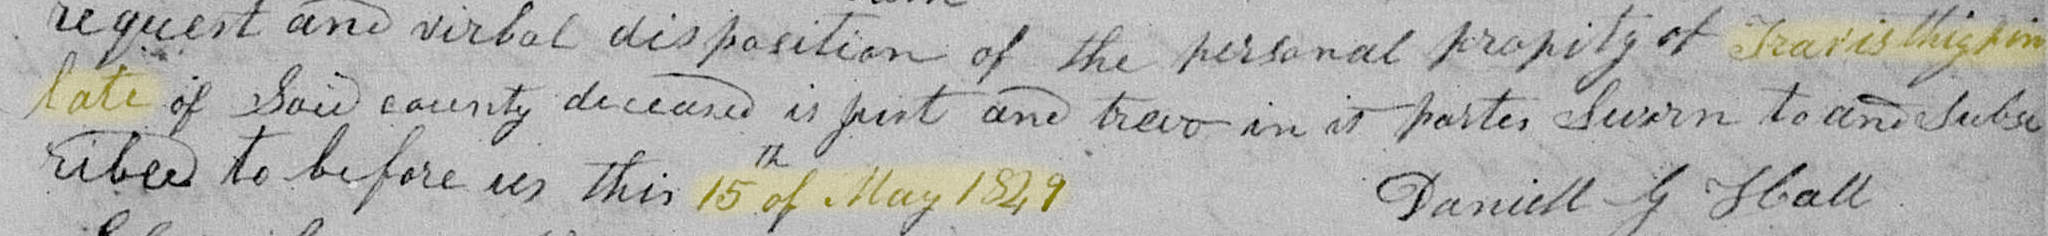 request and virbal disposition of the personal propity of Travis thigpin
late of Said county deceased is just and trew in it partes Sworn to and Subsc
ribed to before us this 15th of May 1849
Daniell G Hall